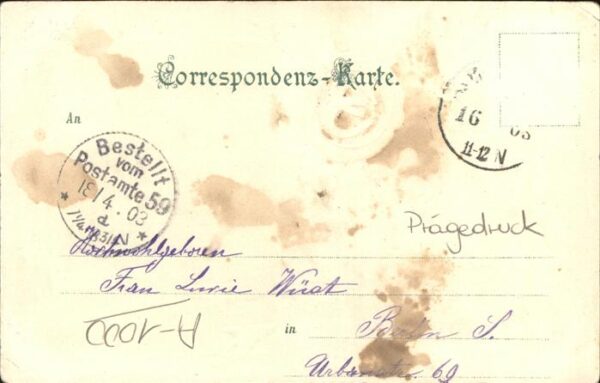 Correspondenz-Karte.
An
16
03
11-12 N
Bestellt
vom
Postamte 59
18/4. 03
Prägedruck
Hochwohlgeboren
Frau Lucie Wüst
A-1000
in
Berlin S.
Urbanstr. 69